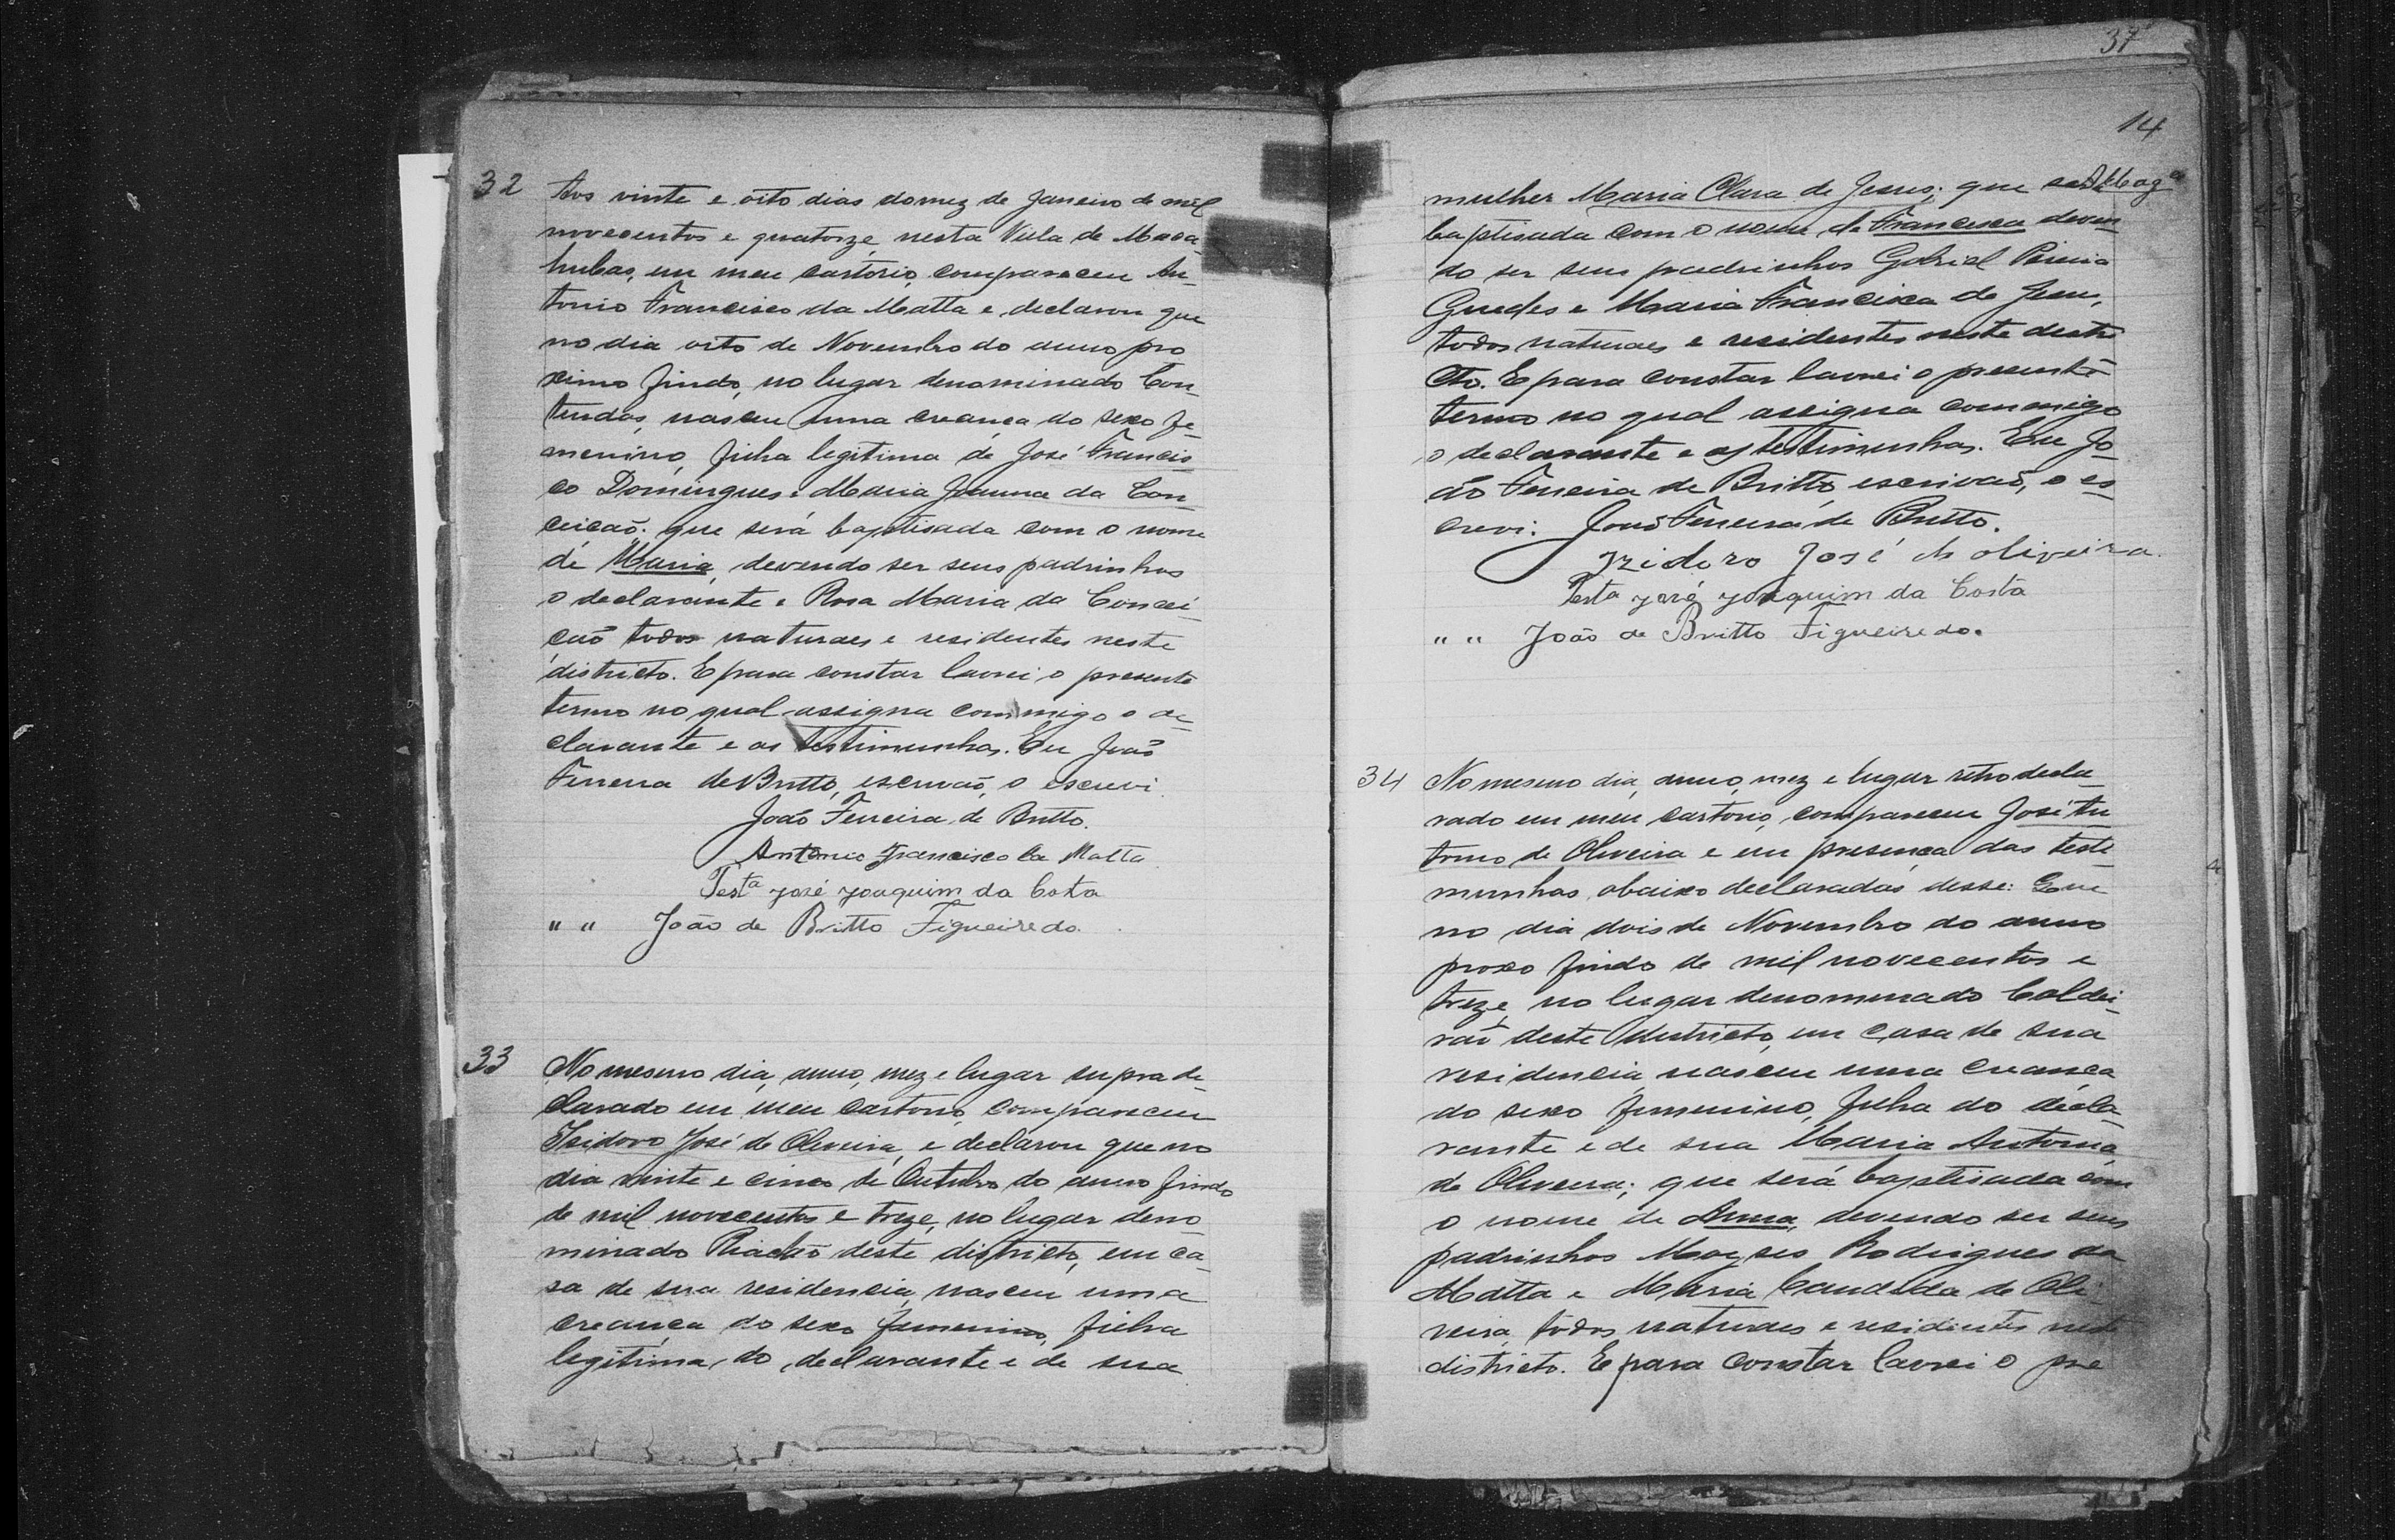 32 Aos vinte e oito dias do mez de Janeiro de mil
novecentos e quatorze, nesta Villa de Maca-
hubas, em meu cartorio, compareceu An-
tonio Francisco da Matta e declarou que
no dia oito de Novembro do anno pro
ximo findo, no lugar denominado Con-
tendas, nasceu uma creança do sexo fe-
menino, filha legitima de José Francis-
co Domingues e Maria Joanna da Con-
ceicaõ, que será baptisada com o nome
de Maria, devendo ser seus padrinhos
o declarante e Rosa Maria da Concei-
çaõ todos naturaes e residentes neste
districto. E para constar lavrei o presente
termo no qual assigna commigo o de-
clarante e as testimunhas. Eu Joaõ
Ferreira de Britto, escrivaõ, o escrevi.
Joaõ Ferreira de Britto.
Antonio Francisco da Matta
Testa José Joaquim da Costa
" " João de Britto Figueiredo.
33 No mesmo dia, anno, mez e lugar supra de-
clarado em meu cartorio, compareceu
Isidoro José de Oliveira, e declarou que no
dia vinte e cinco de Outubro do anno findo
de mil novecentos e treze, no lugar deno
minado Riachaõ deste districto, em ca-
sa de sua residencia, nasceu uma
creança do sexo femenino, filha
legitima, do declarante e de sua
37
14
mulher Maria Clara de Jesus; que será
baptisada com o nome de Francisca deven-
do ser seus padrinhos Gabriel Pereira
Guedes e Maria Francisca de Jesus,
todos naturaes e residentes neste destri
cto. E para constar lavrei o presente
termo no qual assigna commigo
o declarante e as testimunhas. Eu Jo-
aõ Ferreira de Britto, escrivaõ, o es-
crevi. Joaõ Ferreira de Britto.
Izidoro José de oliveira.
Testa José Joaquim da Costa
" " João de Britto Figueiredo.
34 No mesmo dia, anno, mez e lugar retro decla-
rado em meu cartorio, compareceu José An
tonio de Oliveira e em presença das teste-
munhas abaixo declaradas disse: Que
no dia dois de Novembro do anno
proxo findo de mil novecentos e
treze, no lugar denominado Caldei-
raõ deste districto, em casa de sua
residencia nasceu uma creança
do sexo femenino, filha do decla-
rante e de sua Maria Antonia
de Oliveira; que será baptisada com
o nome de Anna, devendo ser seus
padrinhos Moyses Rodrigues da
Matta e Maria Candida de Oli-
veira, todos naturaes e residentes neste
districto. E para constar lavrei o pre